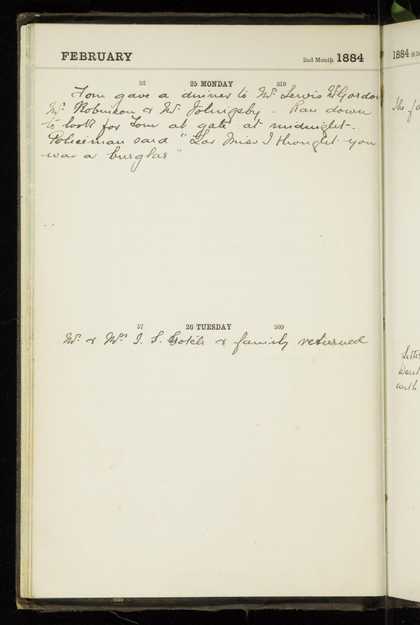 FEBRUARY 2nd Month 1884
56 25 MONDAY 310
Tom gave a dinner to Mr. Lewis Gordon
Mr. Robinson & Mr. - Ran down
to look for Tom at gate at midnight.
Policeman said "Lor Miss I thought you
was a burglar"
57 26 TUESDAY 309
Mr. & Mrs. J. S. Gotch & family returned
1884